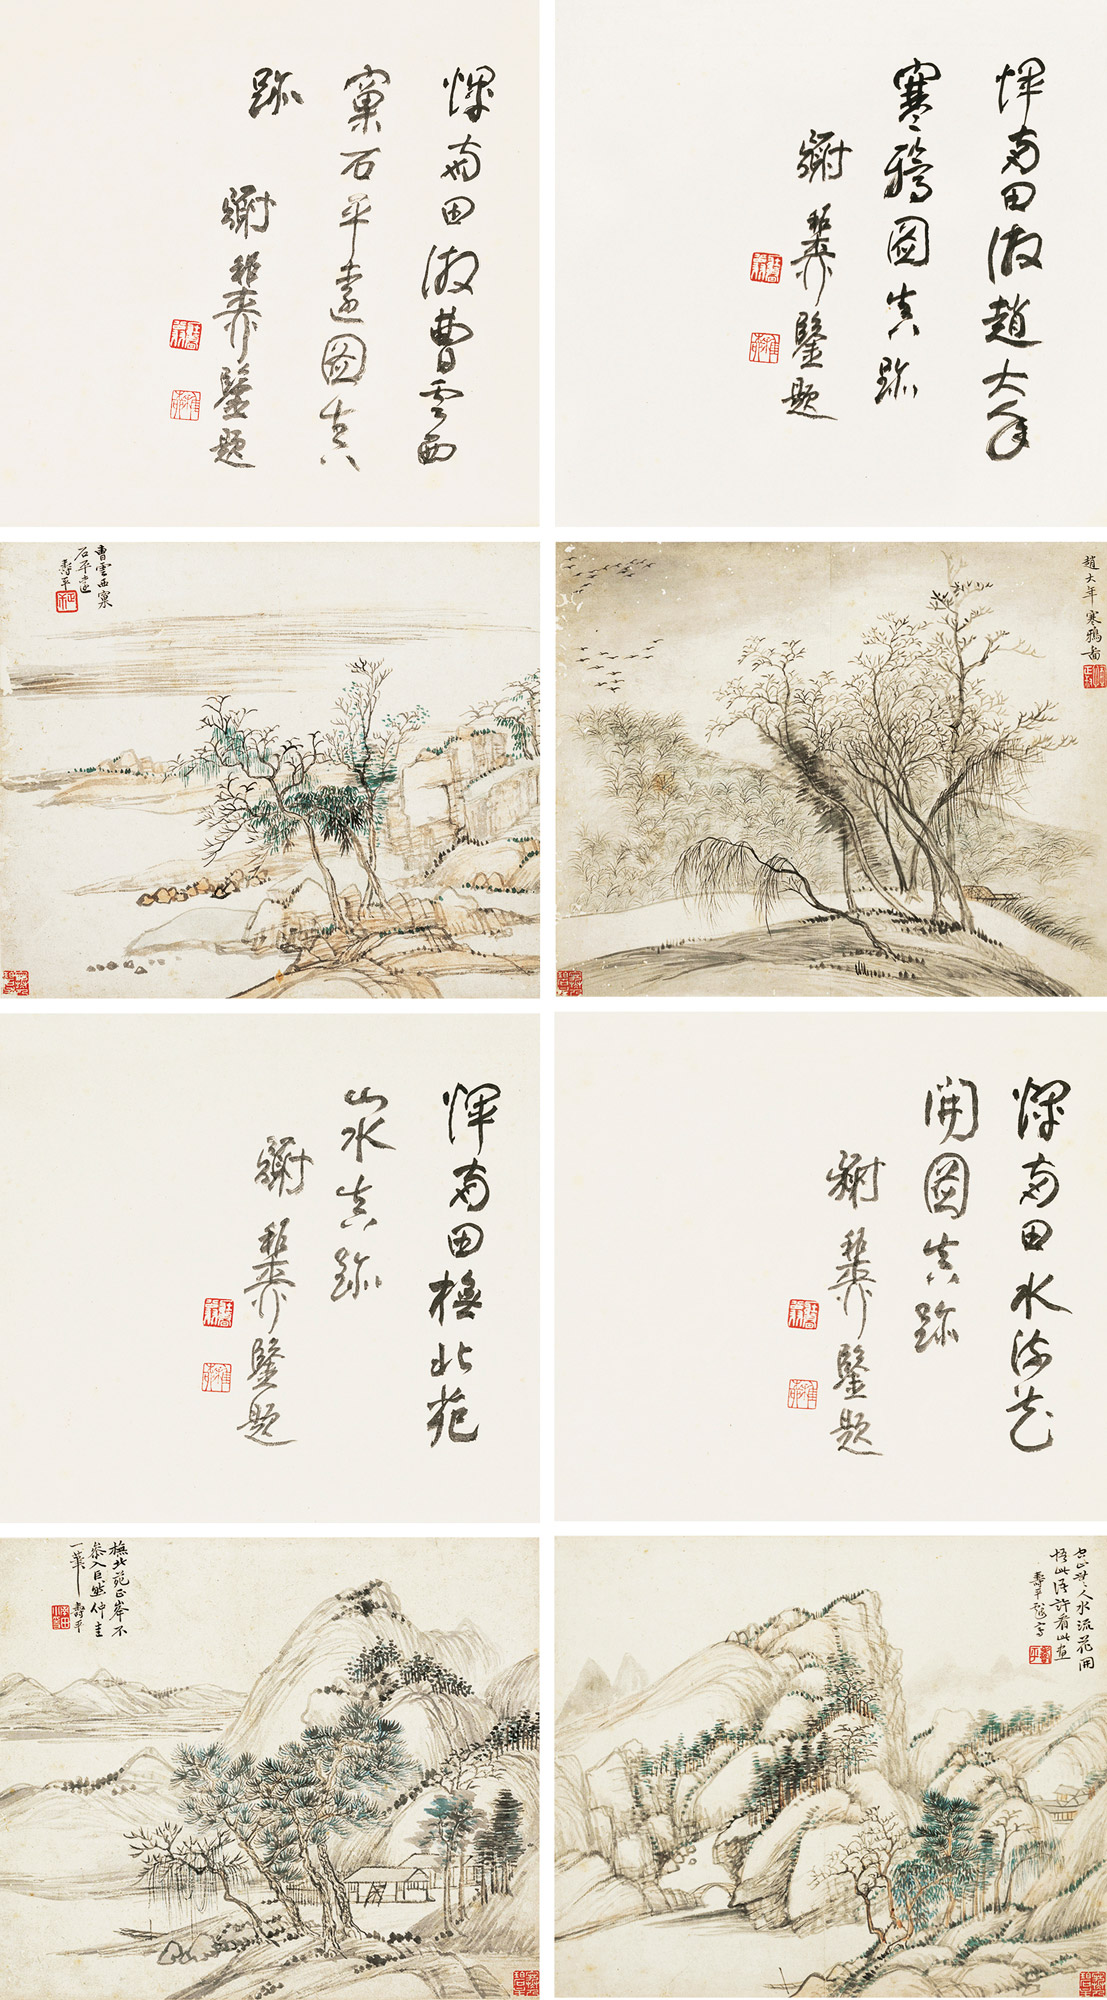 惲南田仿趙大年
寒鴉圖真跡
謝稚柳鑒題
惲南田仿曹雲西
窠石平遠圖真
跡
謝稚柳鑒題
趙大年寒鴉圖
曹雲西窠
石平遠
壽平
惲南田水流花
開圖真跡
謝稚柳鑒題
惲南田橅北苑
山水真跡
謝稚柳鑒題
空山無人水流花開
悟此語許看此畫
壽平戲寫
橅北苑正峯不
參入巨然仲圭
一筆
壽平